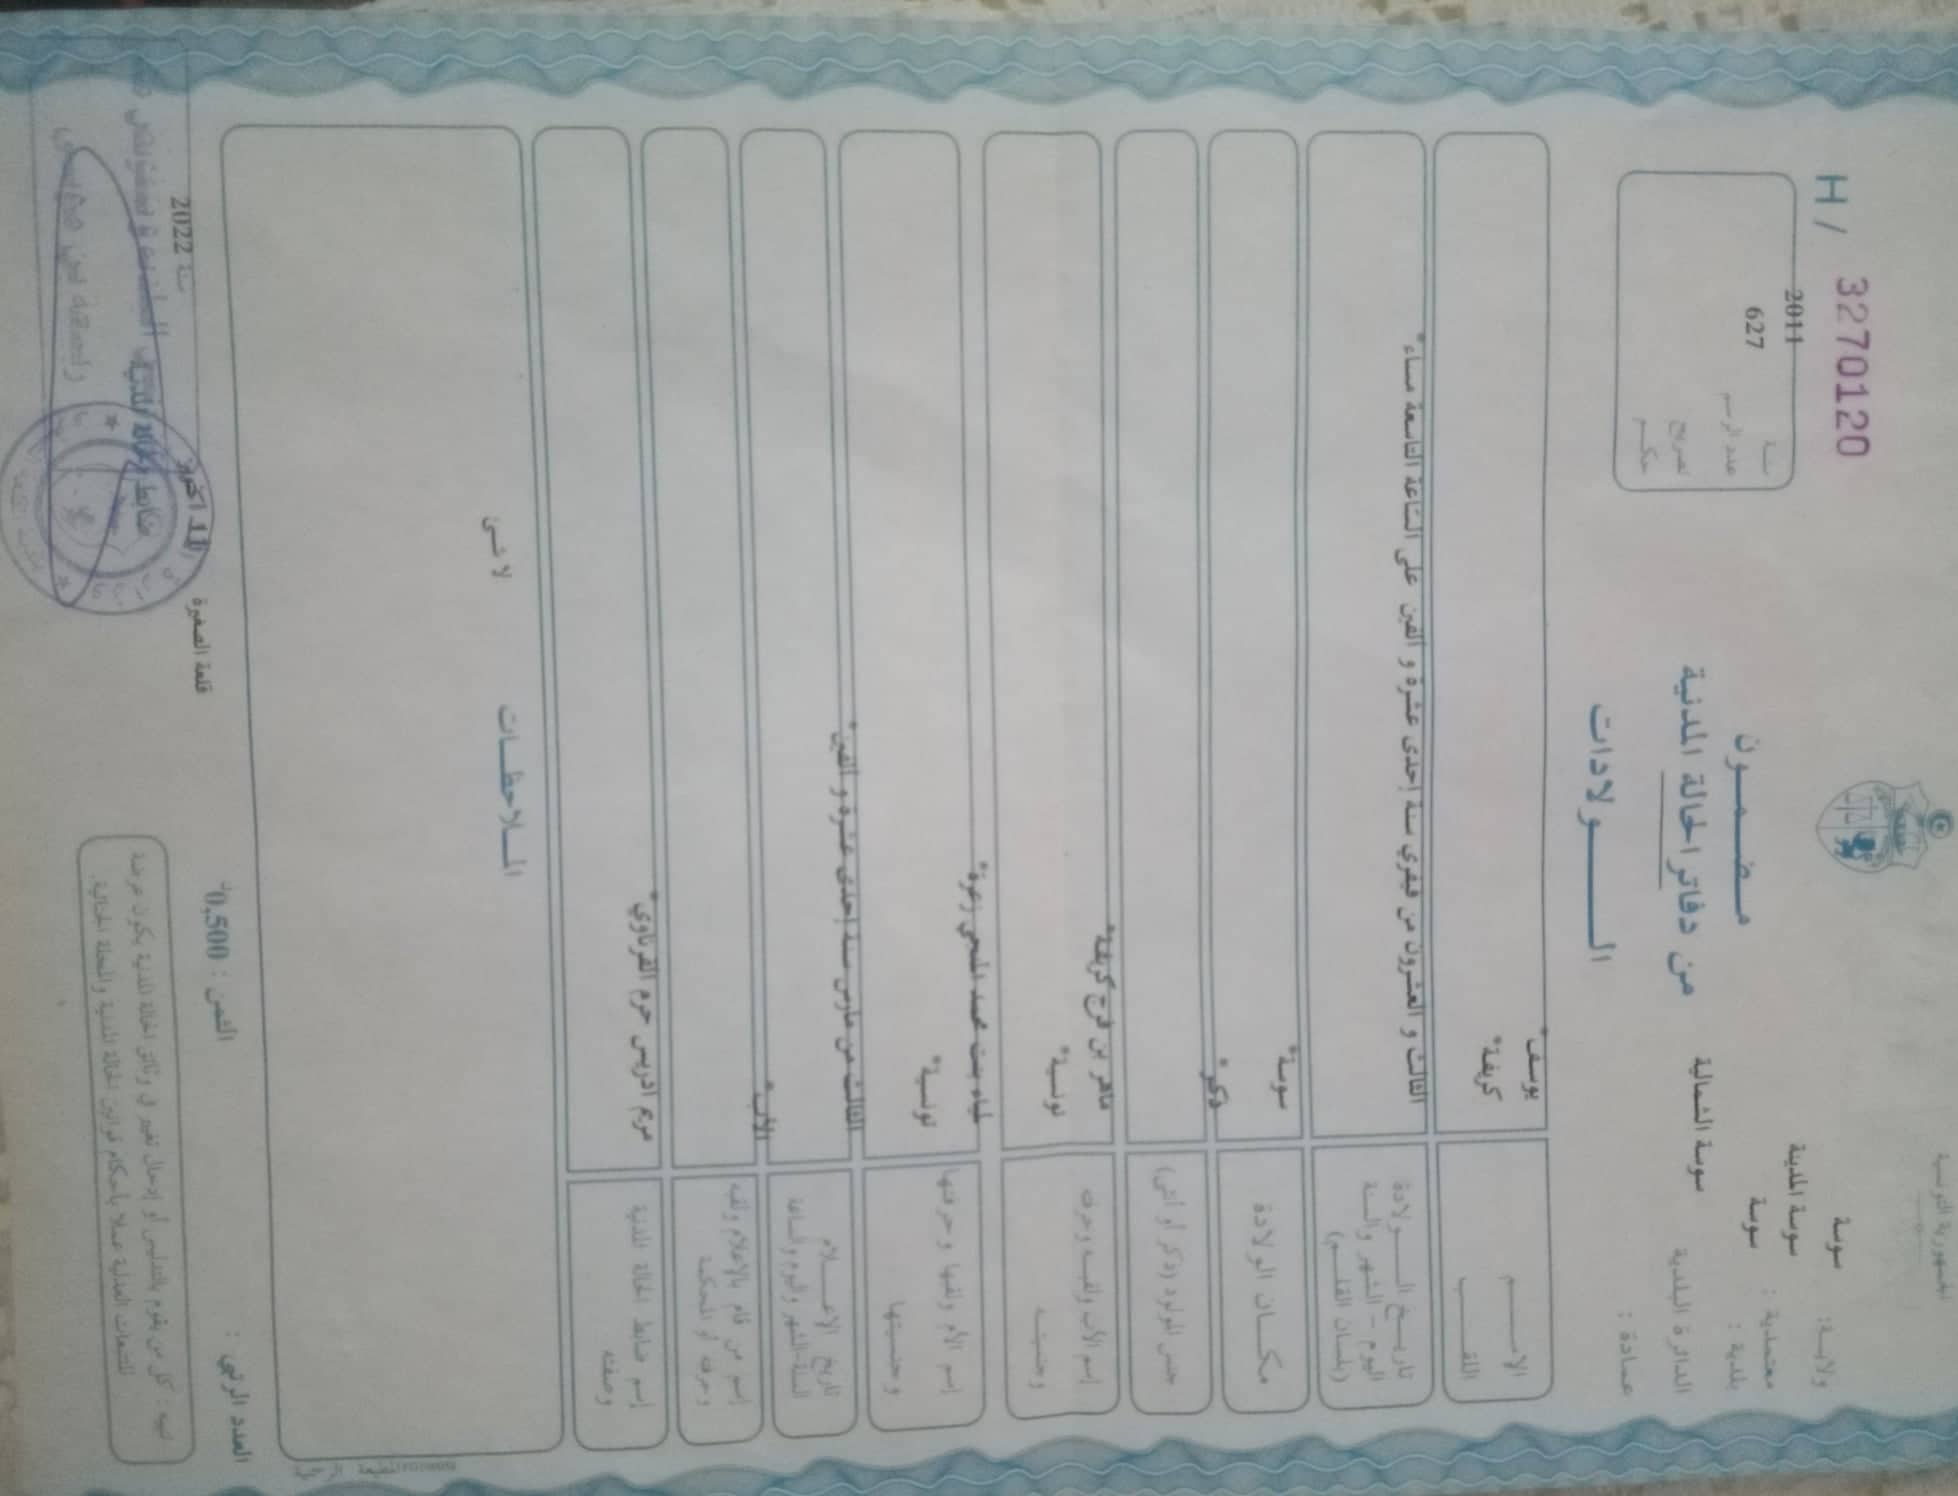 الجمهورية التونسية
ولايـة: سوسة
معتمدية : سوسة المدينة
بلدية : سوسة
الدائرة البلدية سوسة الشمالية
عمادة :
H/ 3270120
مـضـمـون
من دفاتر الحالة المدنية
الـــولادات
سنة 2011
عدد الرسم 627
تصريح
حكم
الاســـم يوسف*
اللقـــب كريفة*
تاريـخ الـــولادة
اليوم - الشهر والسنة
(بلسان القلـم)
الثالث و العشرون من فيفري سنة إحدى عشرة و الفين على الساعة التاسعة مساء*
مكـان الولادة سوسة*
جنس المولود (ذكر أو أنثى) ذكر*
إسم الأب ولقبـه وحرفته ماهر بن فرج كريفة*
وجنسيته تونسية*
إسم الأم ولقبها وحرفتها لمياء بنت محمد المنجي زعرة*
وجنسيتها تونسية*
تاريخ الإعـــلام
السنة-الشهر واليوم والساعة
الثالث من مارس سنة إحدى عشرة و الفين*
إسم من قام بالاعلام ولقبه
وحرفته أو المحكمة
الأب*
إسم ضابط الحالة المدنية
وصفته
مريم ادريس حرم القرناوي*
المـلاحظـات
لا شـئ
المطبعة الرسمية
العدد الرتبي :
الثمن : 0,500د
قلعة الصغيرة 11 اكتوبر سنة 2022
تنبيه : كل من يقوم بالتدليس أو إدخال تغيير في وثائق الحالة المدنية يكون عرضة
للتتبعات العدلية عملا بأحكام قوانين الحالة المدنية والمجلة الجنائية.